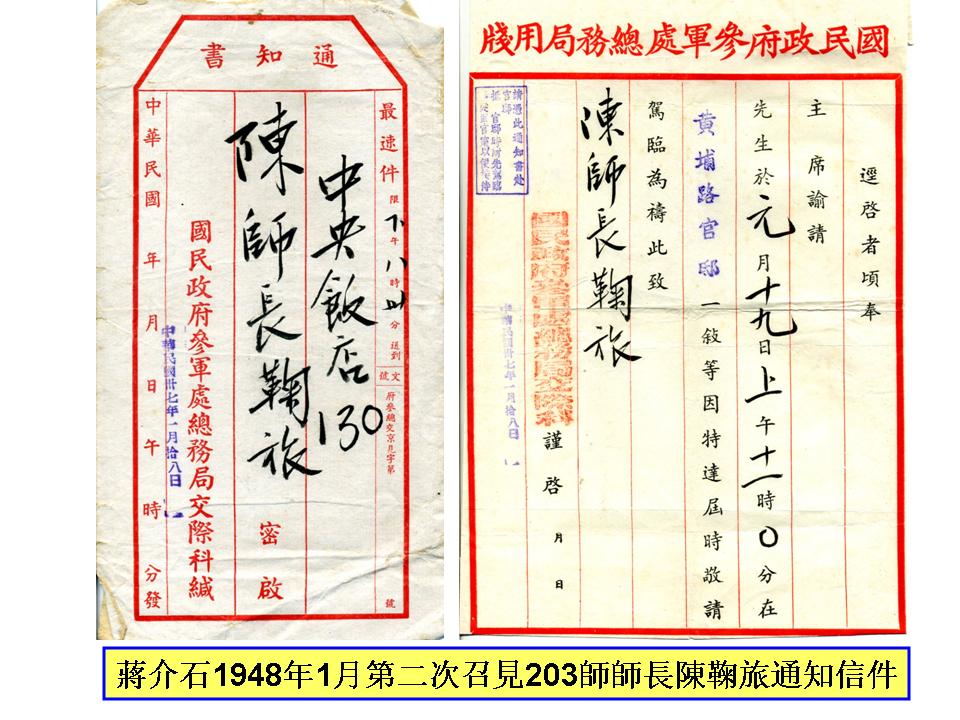 通知書
最速件 限下午八時 分送到
文號 府參總交京 字第 號
中央飯店130
陳師長鞠旅 密啟
國民政府參軍處總務局交際科緘
中華民國 年 月 日 午 時 分發
中華民國卅七年一月拾八日
國民政府參軍處總務局用牋
逕啓者頃奉
主席諭請
先生於元月十九日上午十一時0分在
黃埔路官邸一敍等因特達屆時敬請
駕臨為禱此致
陳師長鞠旅
請憑此通知書赴
國民政府參軍處總務局交際科 謹啓 月 日
中華民國卅七年一月拾八日
蔣介石1948年1月第二次召見203師師長陳鞠旅通知信件